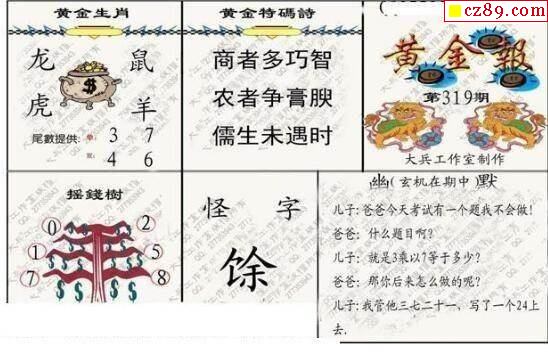 cz89.com
黄金生肖
龙 鼠
虎 羊
尾數提供: 单: 3 7
双: 4 6
黄金特碼詩
商者多巧智
农者争膏腴
儒生未遇时
黄金報
第319期
大兵工作室制作
摇錢樹
0 2
1 5
7 8
怪字
馀
幽(玄机在期中)默
儿子:爸爸今天考试有一个题我不会做!
爸爸: 什么题目啊?
儿子: 就是3乘以7等于多少?
爸爸: 那你后来怎么做的呢?
儿子:我管他三七二十一, 写了一个24上
去.